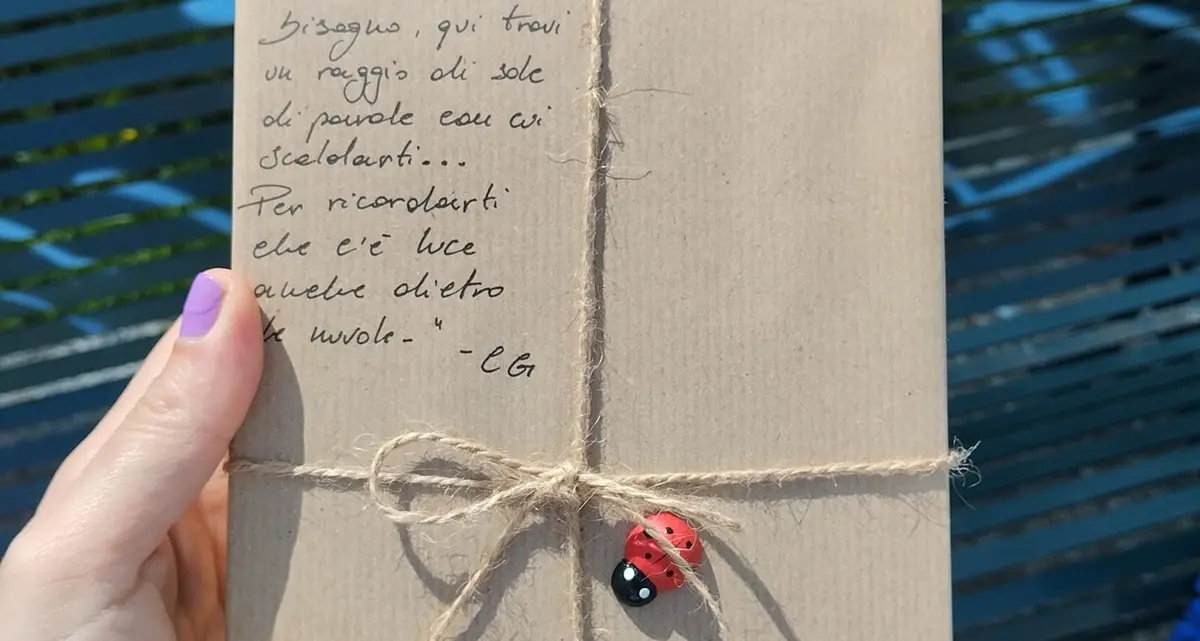 bisogno, qui trovi
un raggio di sole
di parole con cui
scaldarti...
Per ricordarti
che c'è luce
anche dietro
le nuvole."
- CG